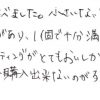 べました。ふたいなっ
があり、1個で十分満
ティングがとてもおいしか
購入出来ないのがざ